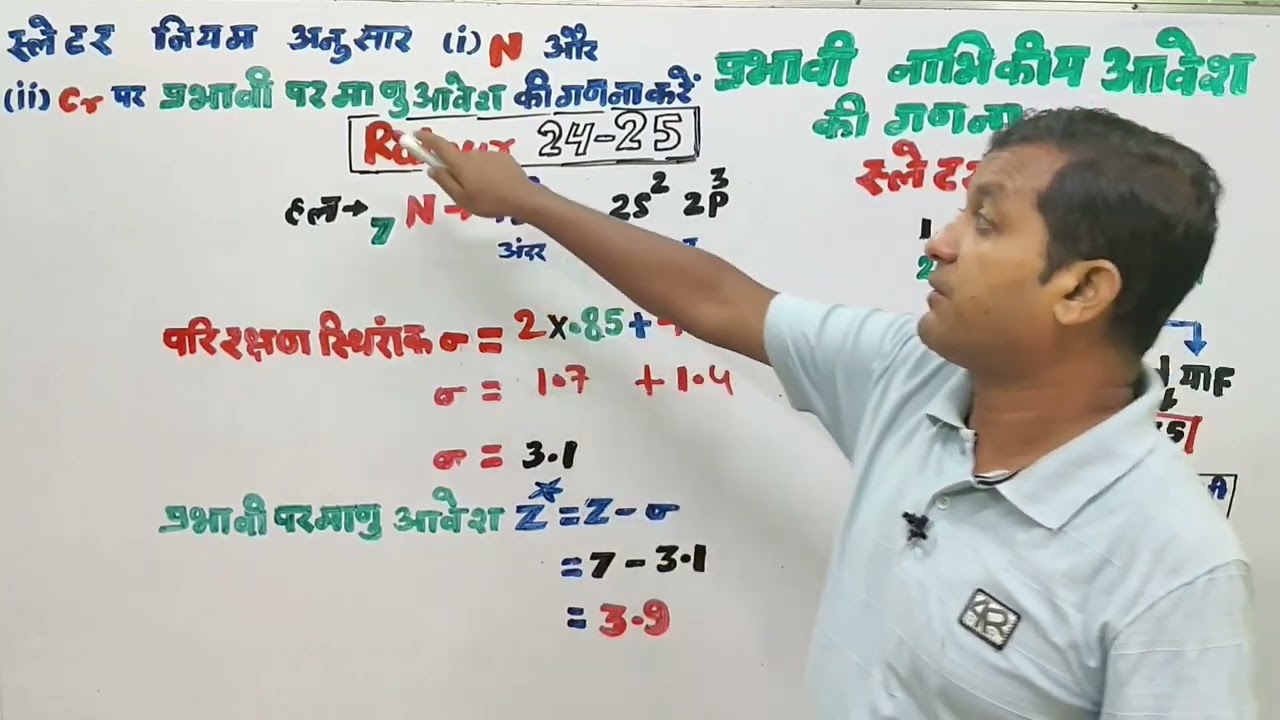 स्लेटर नियम अनुसार (i) N और
(ii) Cr पर प्रभावी परमाणु आवेश की गणना करें
24-25
हल→ 7 N → 2S² 2P³
अंदर
परिरक्षण स्थिरांक σ = 2×.85+
σ = 1.7 + 1.4
σ = 3.1
प्रभावी परमाणु आवेश Z* = Z - σ
= 7 - 3.1
= 3.9
प्रभावी नाभिकीय आवेश
की गणना
स्लेटर
1
2
या F
4R